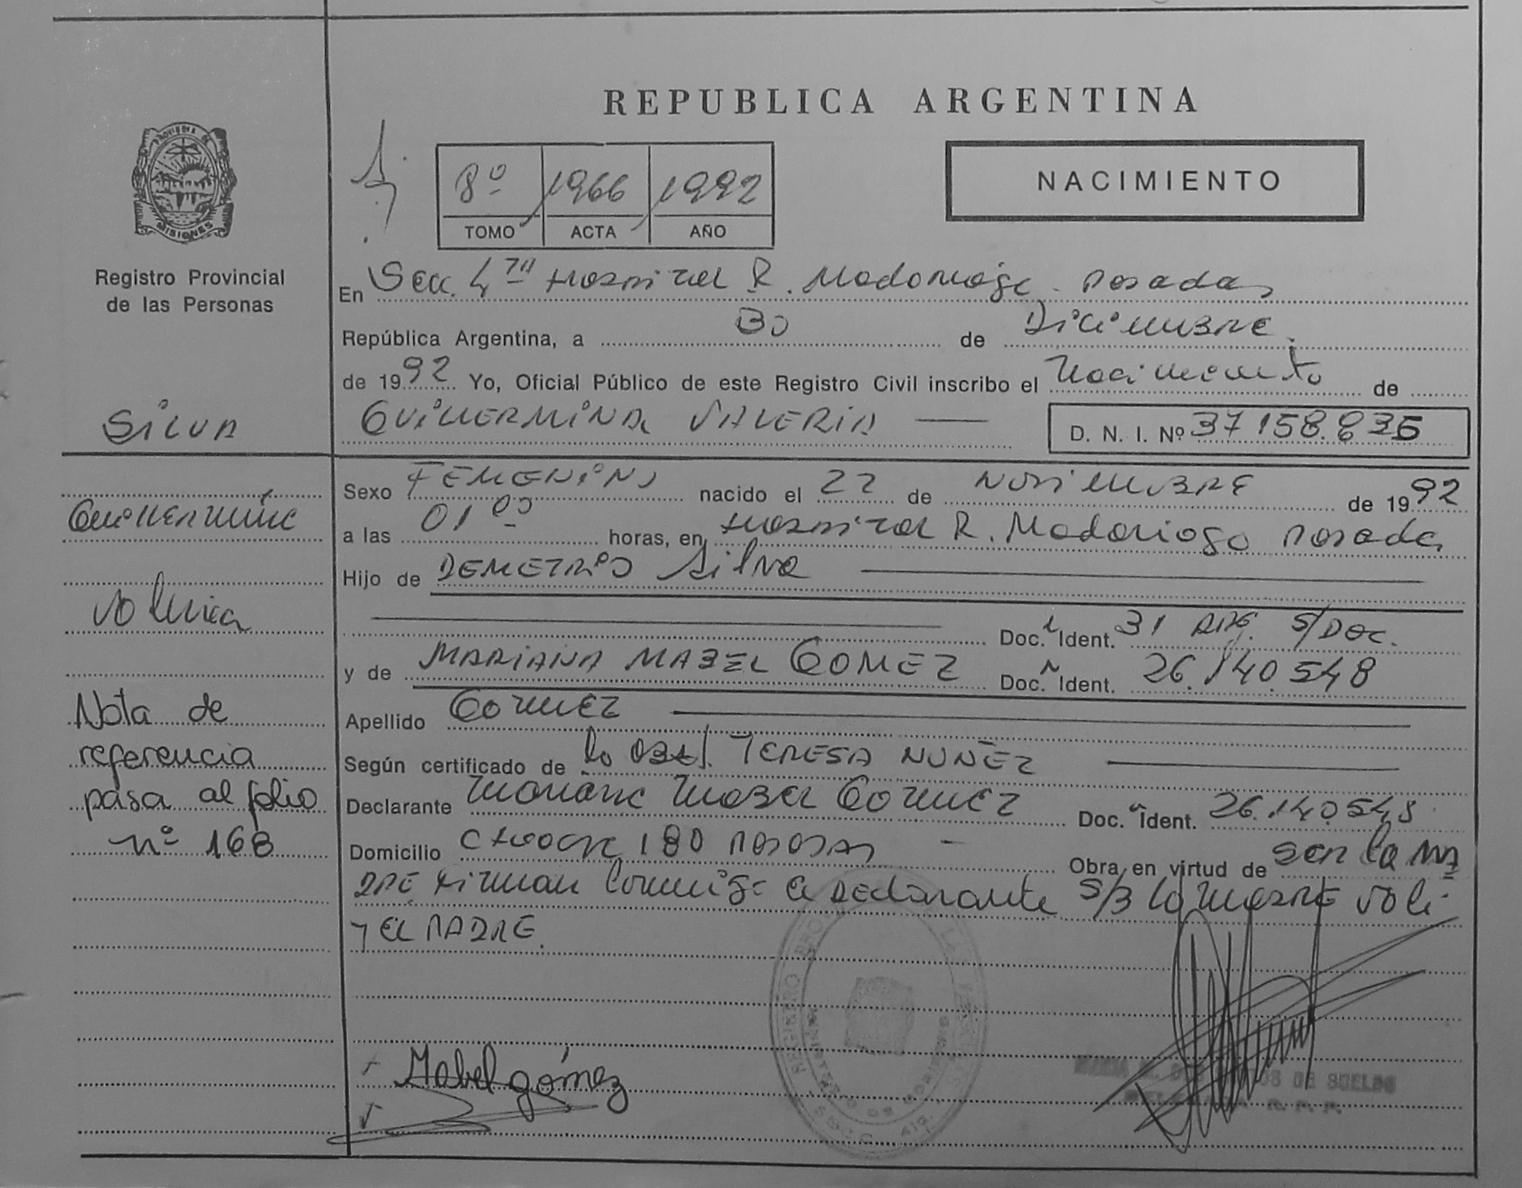 REPUBLICA ARGENTINA
NACIMIENTO
8º 1966 1992
TOMO ACTA AÑO
PROVINCIA DE
MISIONES
Registro Provincial
de las Personas
En Secc. 4ta Hospital R. Madariaga - Posadas
República Argentina, a 30 de Diciembre
de 1992 Yo, Oficial Público de este Registro Civil inscribo el Nacimiento de
GUILLERMINA VALERIA
D. N. I. Nº 37158.835
SILVA
Guillermina
Valeria
Nota de
referencia
pasa al folio
nº 168
Sexo FEMENINO nacido el 22 de NOVIEMBRE de 1992
a las 01 00 horas, en Hospital R. Madariaga Posadas
Hijo de DEMETRIO Silva
Doc. Ident. 31 ARG. S/DOC.
y de MARIANA MABEL GOMEZ Doc. Ident. 26.140.548
Apellido GOMEZ
Según certificado de la Obst. TERESA NUÑEZ
Declarante Mariana Mabel Gomez Doc. Ident. 26.140.548
Domicilio 180 POSADAS Obra en virtud de ser la MA
DRE Firman Conmigo la Declarante S/B la MADRE
Y EL PADRE.
Mabel gómez